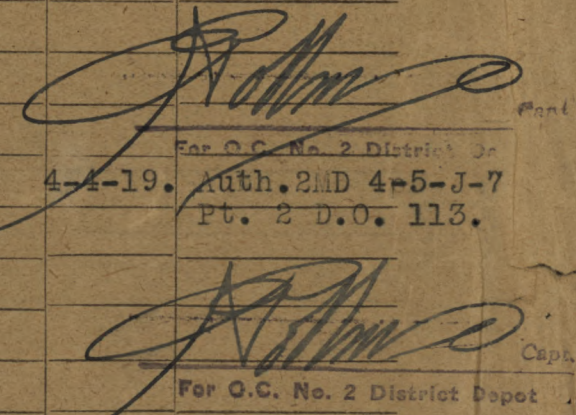 Capt
For O.C. No. 2 District De
4-4-19. Auth.2MD 4-5-J-7
Pt. 2 D.O. 113.
Capt.
For O.C. No. 2 District Depot